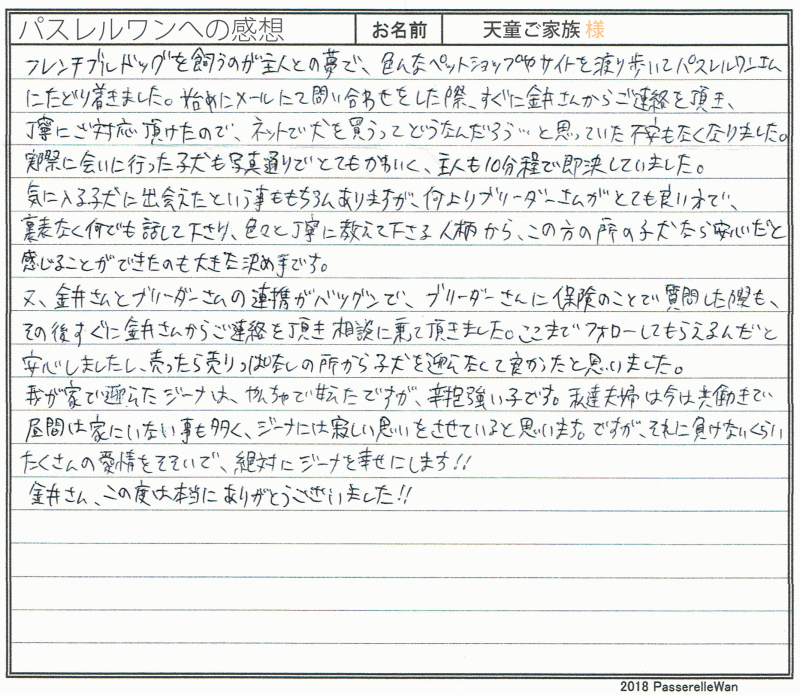 パスレルワンへの感想 お名前 天童ご家族 様
フレンチブルドッグを飼うのが主人との夢で、色んなペットショップやサイトを渡り歩いてパスレルワンさん
にたどり着きました。始めにメールにて問い合わせをした際、すぐに金井さんからご連絡を頂き、
丁寧にご対応頂けたので、ネットで犬を買うってどうなんだろう…と思っていた不安もなくなりました。
実際に会いに行った子犬も写真通りでとてもかわいく、主人も10分程で即決していました。
気に入る子犬に出会えたという事ももちろんありますが、何よりブリーダーさんがとても良い方で、
裏表なく何でも話して下さり、色々と丁寧に教えて下さる人柄から、この方の所の子犬なら安心だと
感じることができたのも大きな決め手です。
又、金井さんとブリーダーさんの連携がバツグンで、ブリーダーさんに保険のことで質問した際も、
その後すぐに金井さんからご連絡を頂き相談に乗って頂きました。ここまでフォローしてもらえるんだと
安心しましたし、売ったら売りっぱなしの所から子犬を迎えなくて良かったと思いました。
我が家で迎えたジーナは、やんちゃで甘えたですが、辛抱強い子です。私達夫婦は今は共働きで
昼間は家にいない事も多く、ジーナには寂しい思いをさせていると思います。ですが、それに負けないくらい
たくさんの愛情をそそいで、絶対にジーナを幸せにします!!
金井さん、この度は本当にありがとうございました!!
2018 PasserelleWan